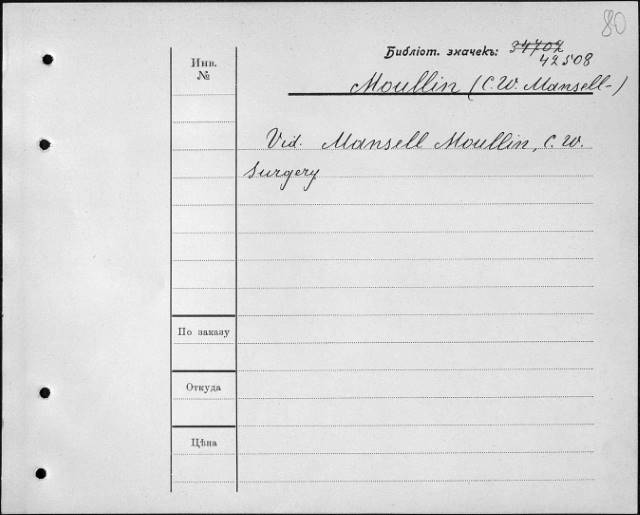 80
Библіот. значекъ: 34702
42508
Инв.
№
Moullin (C. W. Mansell-)
Vid. Mansell Moullin, C. W.
Surgery
По заказу
Откуда
Цѣна